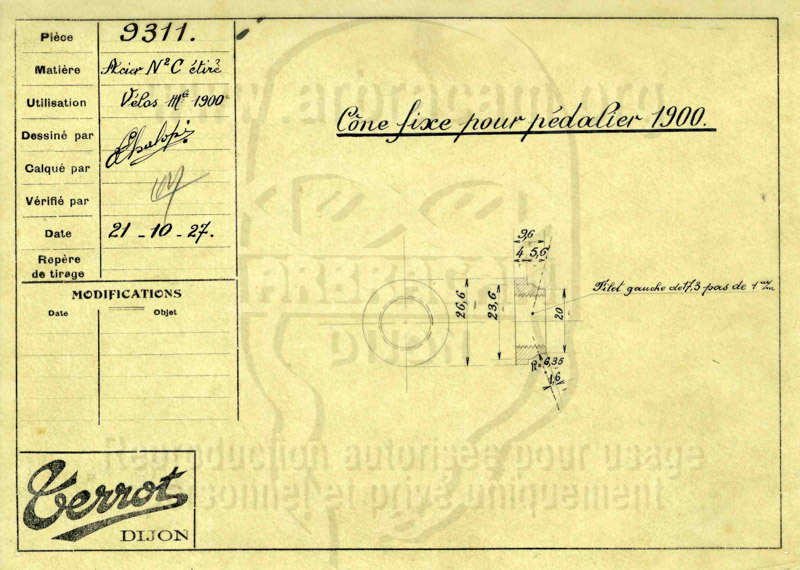 Pièce 9311.
Matière Acier N° C étiré
Utilisation Vélos Mle 1900
Dessiné par
Calqué par
Vérifié par
Date 21 - 10 - 27.
Repère
de tirage
MODIFICATIONS
Date Objet
Terrot
DIJON
Cône fixe pour pédalier 1900.
9,6
4 5,6
26,6
23,6
20
Filet gauche de 17,3 pas de 1 m/m
R. 6,35
1,6
www.arbracam.org
Reproduction autorisée pour usage
personnel et privé uniquement